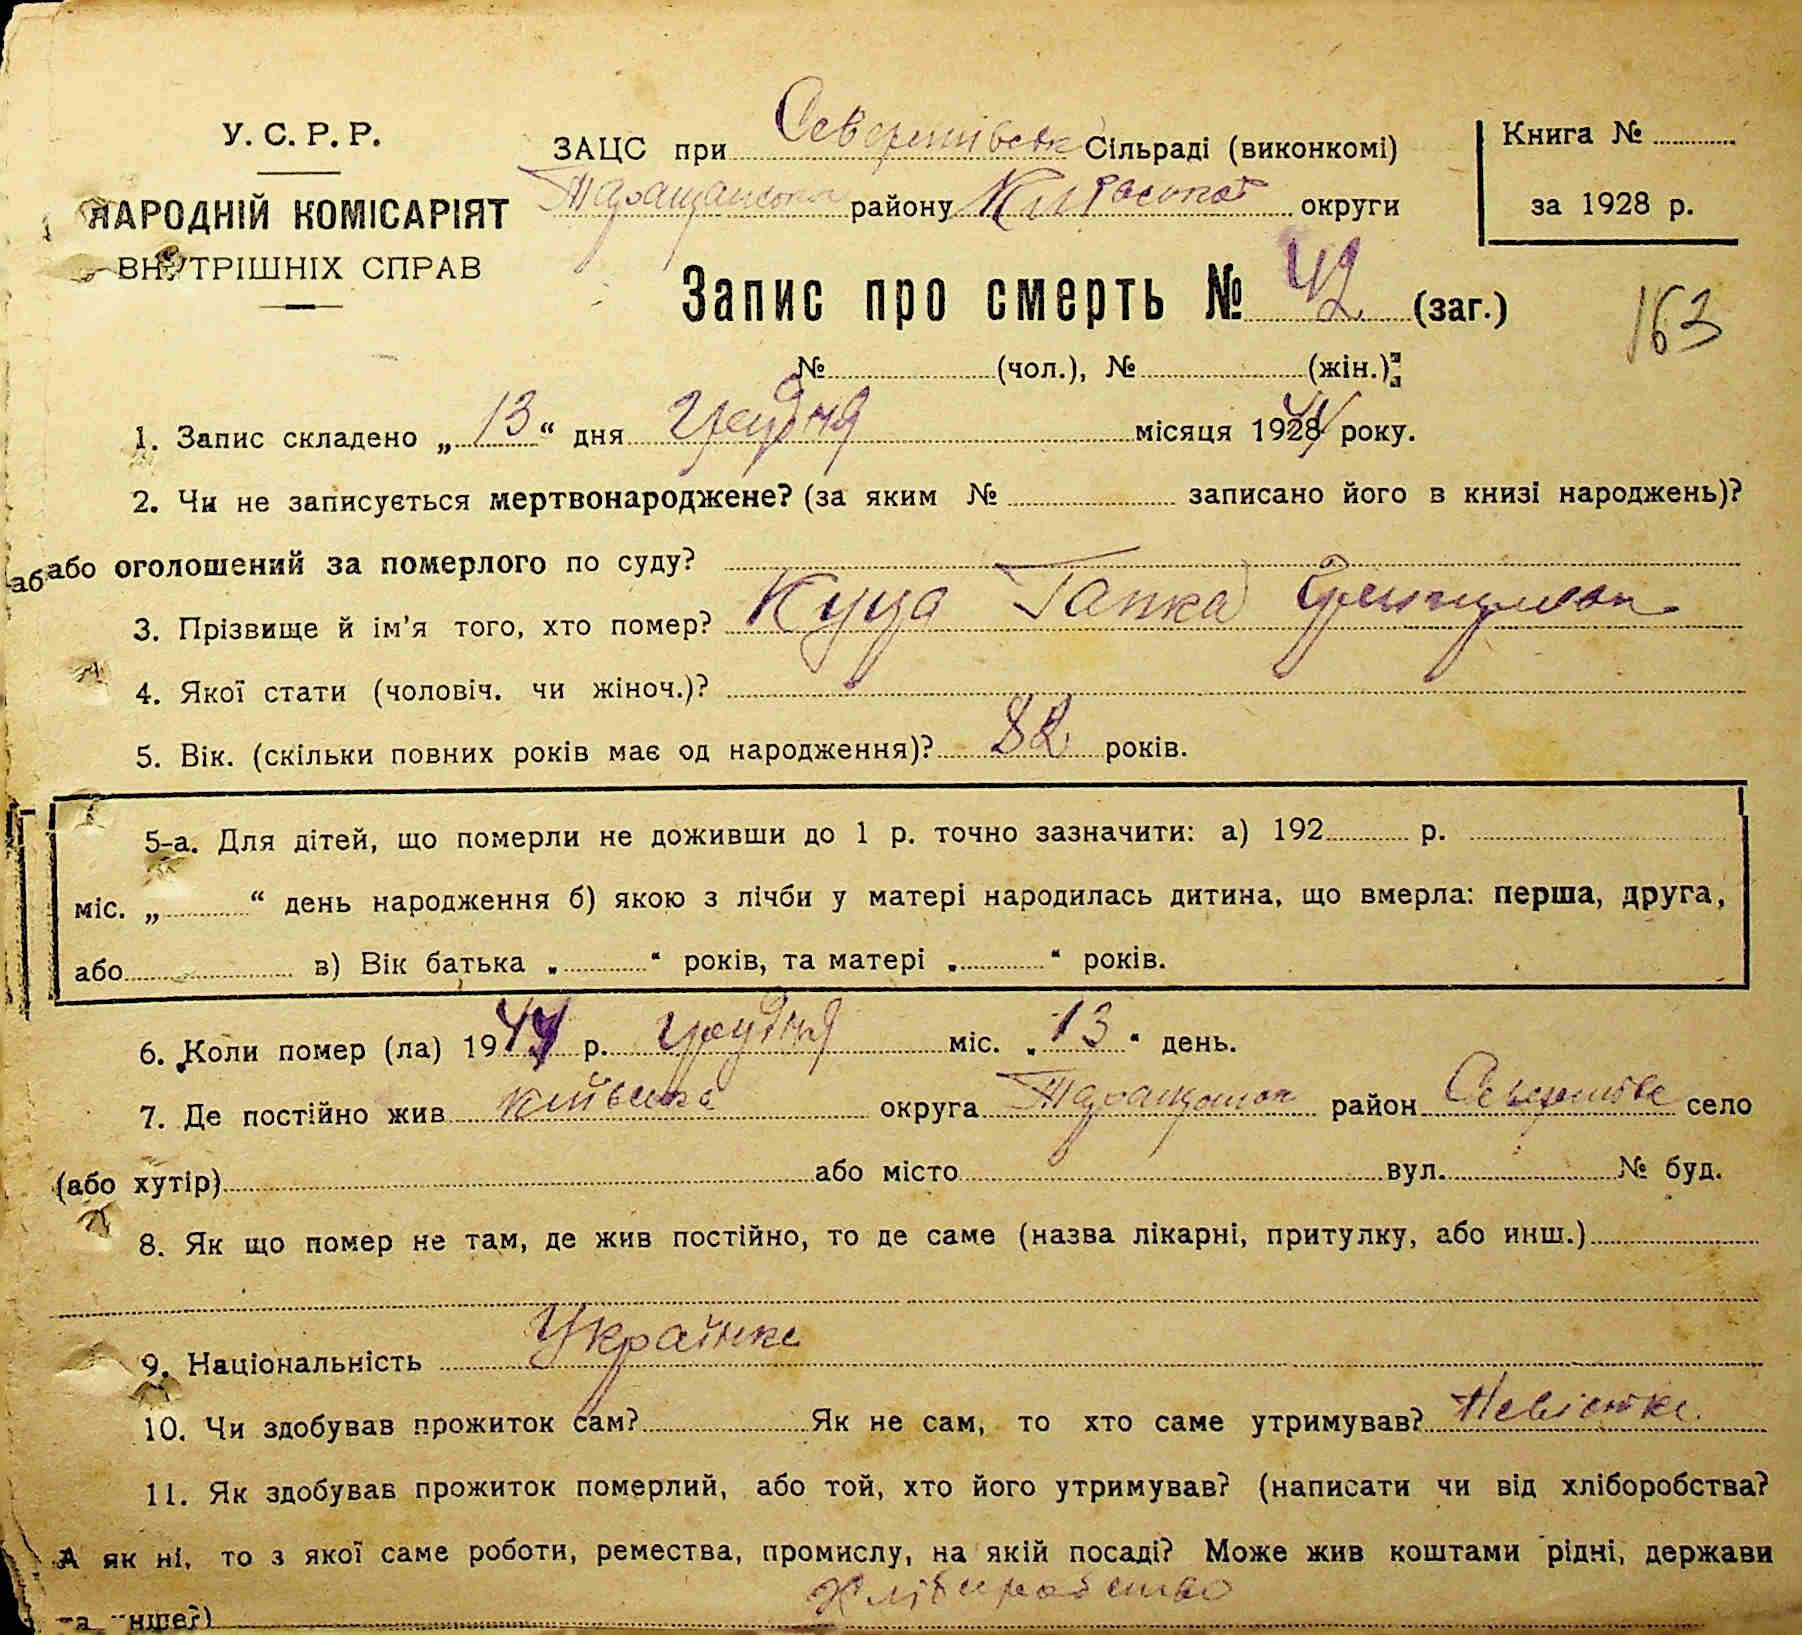 У. С. Р. Р.
НАРОДНІЙ КОМІСАРІЯТ
ВНУТРІШНІХ СПРАВ
ЗАЦС при Северинівськ Сільраді (виконкомі)
Таращанськ району Київської округи
Книга №
за 1928 р.
Запис про смерть № 42 (заг.)
163
№ (чол.), № (жін.)
1. Запис складено „ 13 “ дня Грудня місяця 1928 44 року.
2. Чи не записується мертвонароджене? (за яким № записано його в книзі народжень)?
або оголошений за померлого по суду?
3. Прізвище й ім’я того, хто помер? Куца Гапка
4. Якої стати (чоловіч. чи жіноч.)?
5. Вік. (скільки повних років має од народження)? 82 років.
5-а. Для дітей, що померли не доживши до 1 р. точно зазначити: а) 192 р.
міс. „ “ день народження б) якою з лічби у матері народилась дитина, що вмерла: перша, друга,
або в) Вік батька „ “ років, та матері „ “ років.
6. Коли помер (ла) 1944 р. Грудня міс. „ 13 “ день.
7. Де постійно жив Київська округа Таращанськ район село
(або хутір) або місто вул. № буд.
8. Як що помер не там, де жив постійно, то де саме (назва лікарні, притулку, або инш.)
9. Національність Українка
10. Чи здобував прожиток сам? Як не сам, то хто саме утримував? Невістка
11. Як здобував прожиток померлий, або той, хто його утримував? (написати чи від хліборобства?
А як ні, то з якої саме роботи, ремества, промислу, на якій посаді? Може жив коштами рідні, держави
та інше?) Хліборобство